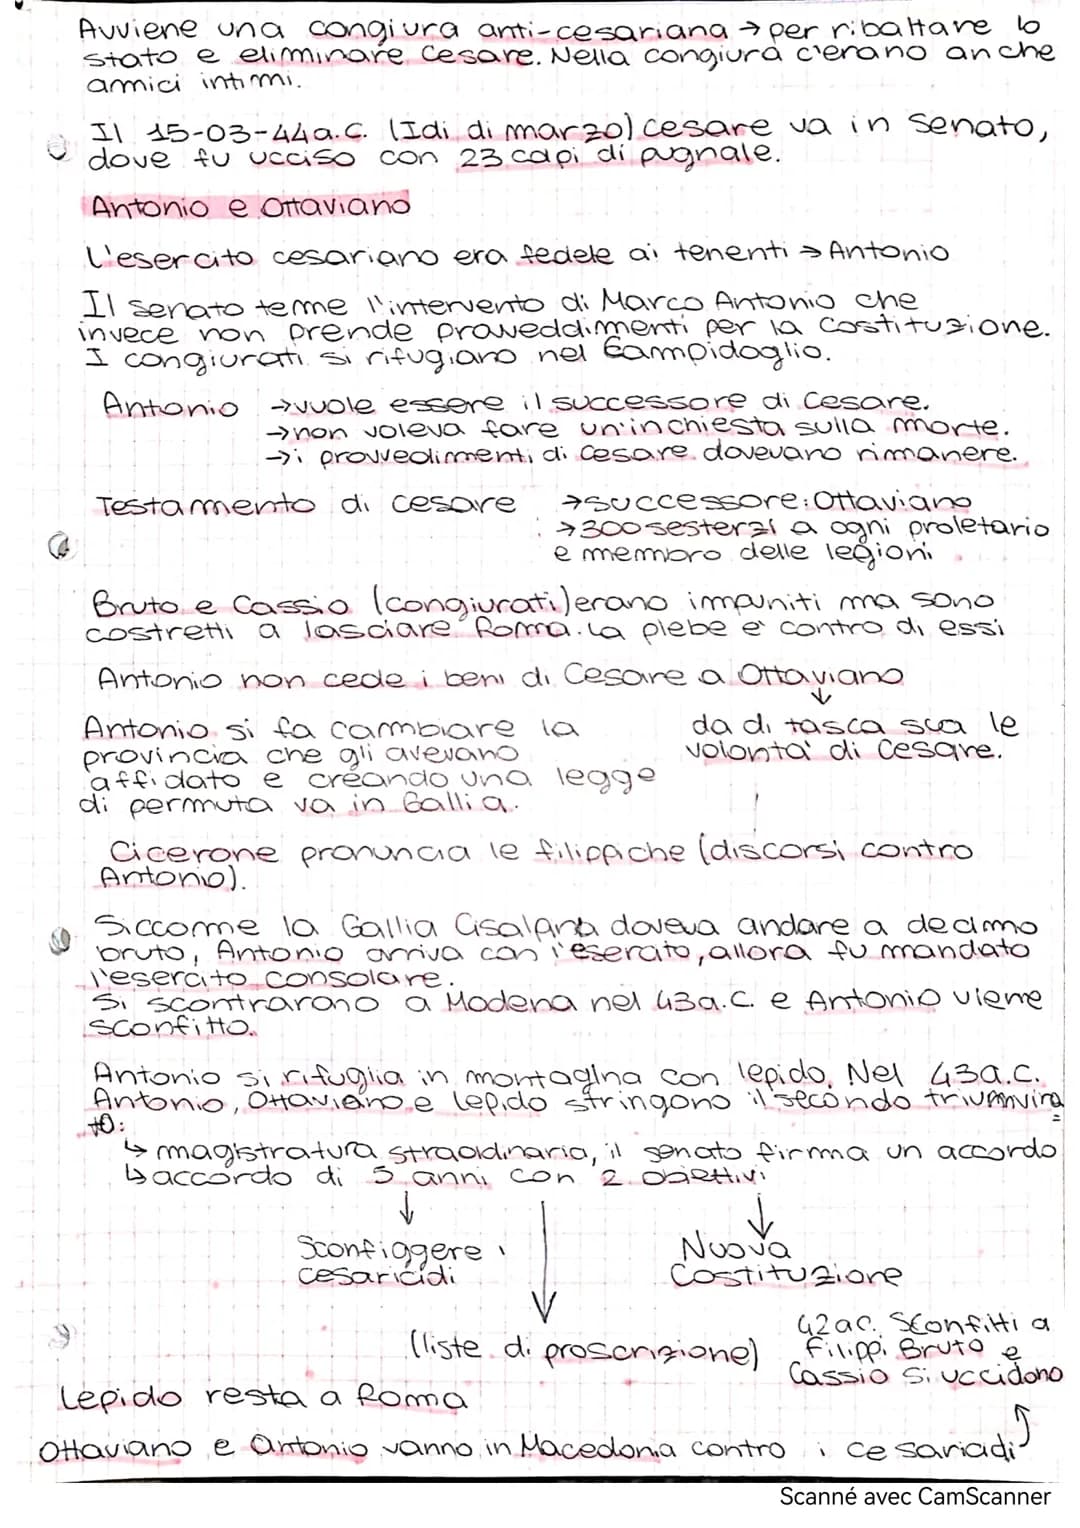 Avviene una congiura anti-cesariana → per ribaltare lo
stato e eliminare Cesare. Nella congiura c'erano anche
amici intimi.
Il 15-03-44a.C. (Idi di marzo) Cesare va in Senato,
dove fu ucciso con 23 colpi di pugnale.
Antonio e Ottaviano
L'esercito cesariano era fedele ai tenenti → Antonio
Il senato teme l'intervento di Marco Antonio che
invece non prende provveddimenti per la Costituzione.
I congiurati si rifugiano nel Campidoglio.
Antonio → vuole essere il successore di Cesare.
→ non voleva fare un'inchiesta sulla morte.
→ i provvedimenti di Cesare dovevano rimanere.
Testamento di Cesare → successore: Ottaviano
→ 300 sesterzi a ogni proletario
e membro delle legioni.
Bruto e Cassio (congiurati) erano impuniti ma sono
costretti a lasciare Roma. La plebe e' contro di essi
Antonio non cede i beni di Cesare a Ottaviano
↓
Antonio si fa cambiare la
provincia che gli avevano
affidato e creando una legge
di permuta va in Gallia.
da di tasca sua le
volonta' di Cesare.
Cicerone pronuncia le filippiche (discorsi contro
Antonio).
Siccome la Gallia Cisalpina doveva andare a decimo
bruto, Antonio arriva con l'esercito, allora fu mandato
l'esercito consolare.
Si scontrarono a Modena nel 43a.C. e Antonio viene
sconfitto.
Antonio si rifuglia in montagna con lepido. Nel 43a.C.
Antonio, Ottaviano e Lepido stringono il secondo triumvira
to:
↳ magistratura straoidinaria, il senato firma un accordo
↳ accordo di 5 anni con 2 obiettivi
↓ ↓ ↓
Sconfiggere i
cesaricidi
Nuova
Costituzione
(liste di proscrizione)
42ac. Sconfitti a
Filippi Bruto e
Cassio si uccidono
Lepido resta a Roma
Ottaviano e Antonio vanno in Macedonia contro i cesariadi
Scanné avec CamScanner